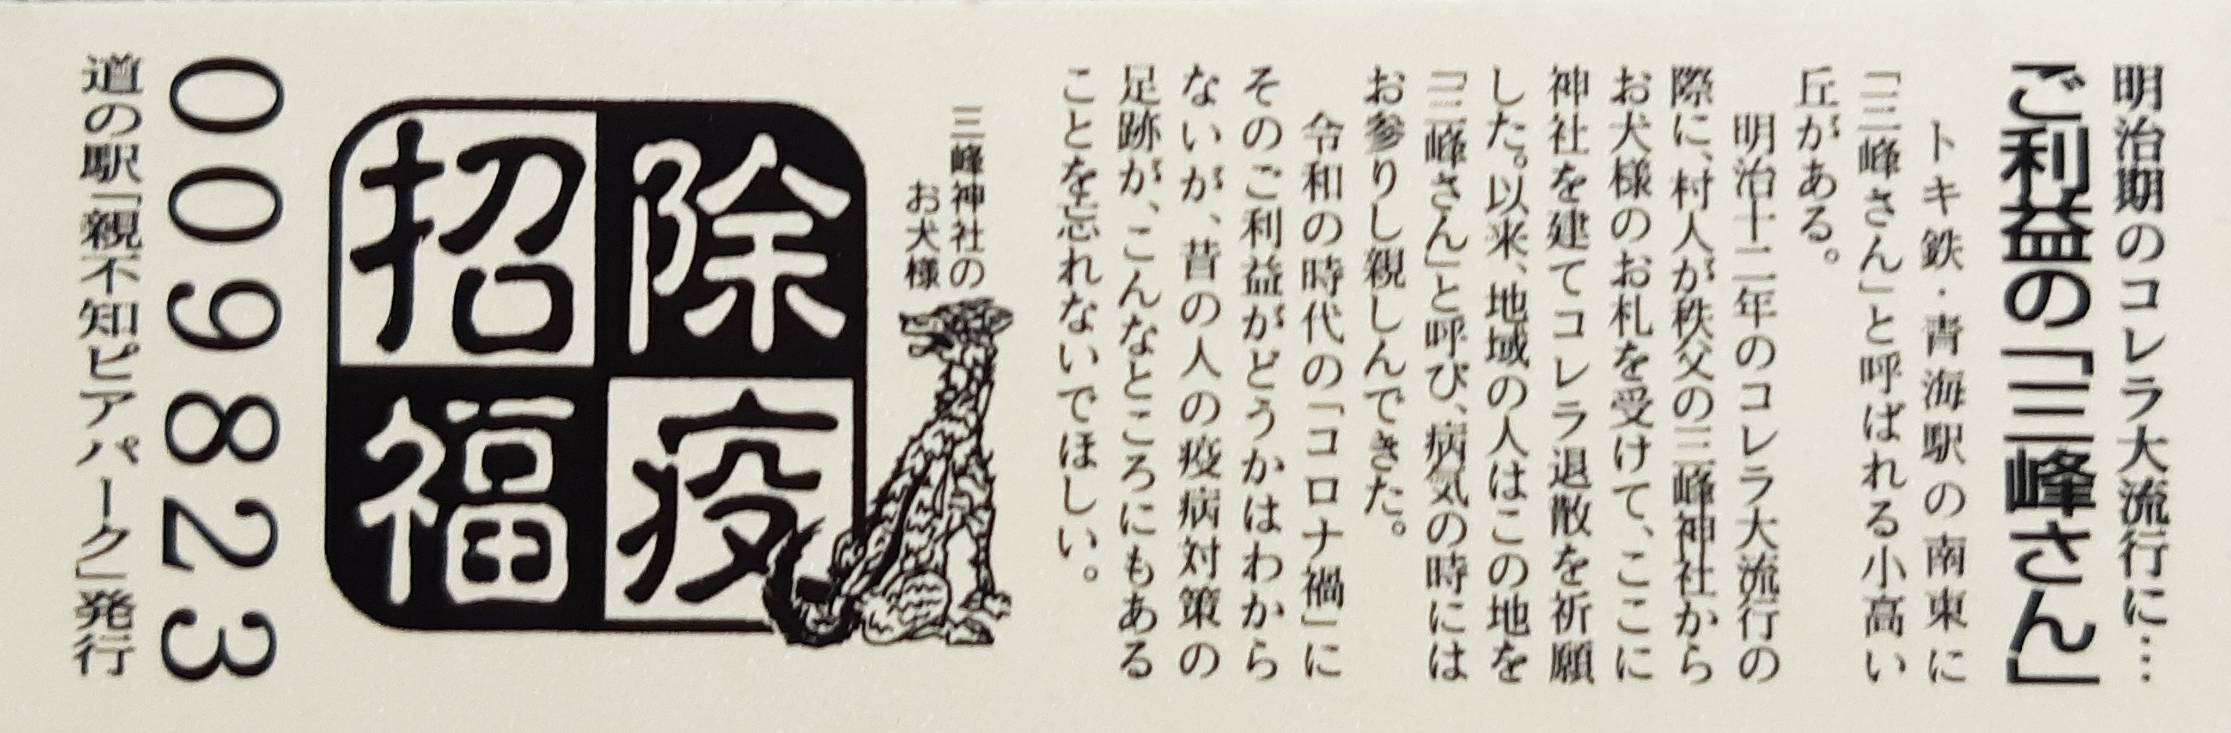 明治期のコレラ大流行に…
ご利益の「三峰さん」
トキ鉄・青海駅の南東に
「三峰さん」と呼ばれる小高い
丘がある。
明治十二年のコレラ大流行の
際に、村人が秩父の三峰神社から
お犬様のお札を受けて、ここに
神社を建てコレラ退散を祈願
した。以来、地域の人はこの地を
「三峰さん」と呼び、病気の時には
お参りし親しんできた。
令和の時代の「コロナ禍」に
そのご利益がどうかはわから
ないが、昔の人の疫病対策の
足跡が、こんなところにもある
ことを忘れないでほしい。
三峰神社の
お犬様
除疫
招福
009823
道の駅「親不知ピアパーク」発行